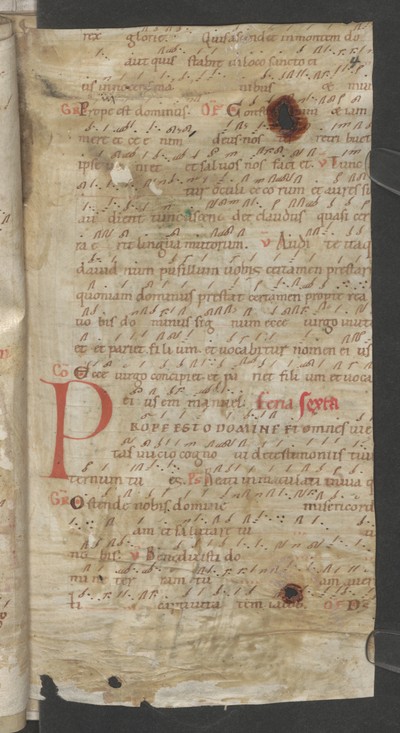 rex glorie. Quis ascendet in montem do
aut quis stabit in loco sancto ei
us innocens ma nibus & mun
GR Prope est dominus. OF Confor mini & iam
nere ecce e nim deus nos ter retri buet
ipse veni et & saluos nos faci et. V Tunc
tur oculi ceco rum et aures su
au dient tunc ascen det claudus quasi cer
ra e rit lingua mutorum. V Audi te itaq
dauid num pusillum uobis certamen prestare
quoniam dominus prestat certamen propter rea
uo bis do minus sig num ecce uirgo in ute
et et pariet fili um et uocabitur nomen ei us
CO Ecce uirgo concipiet et pa riet fili um et uoca
ei us em manuel. Feria Sexta
PROPE ESTO DOMINE Et omnes uie
tas inicio cogno ui de testimoniis tuis
ternum tu es. Ps Beati inmaculati in uia q
GR Ostende nobis domine misericord
am et salutare tu
no bis. V Benedixisti do
mi ne ter ram tu am auer
ti captiuita tem iacob. OF De
4